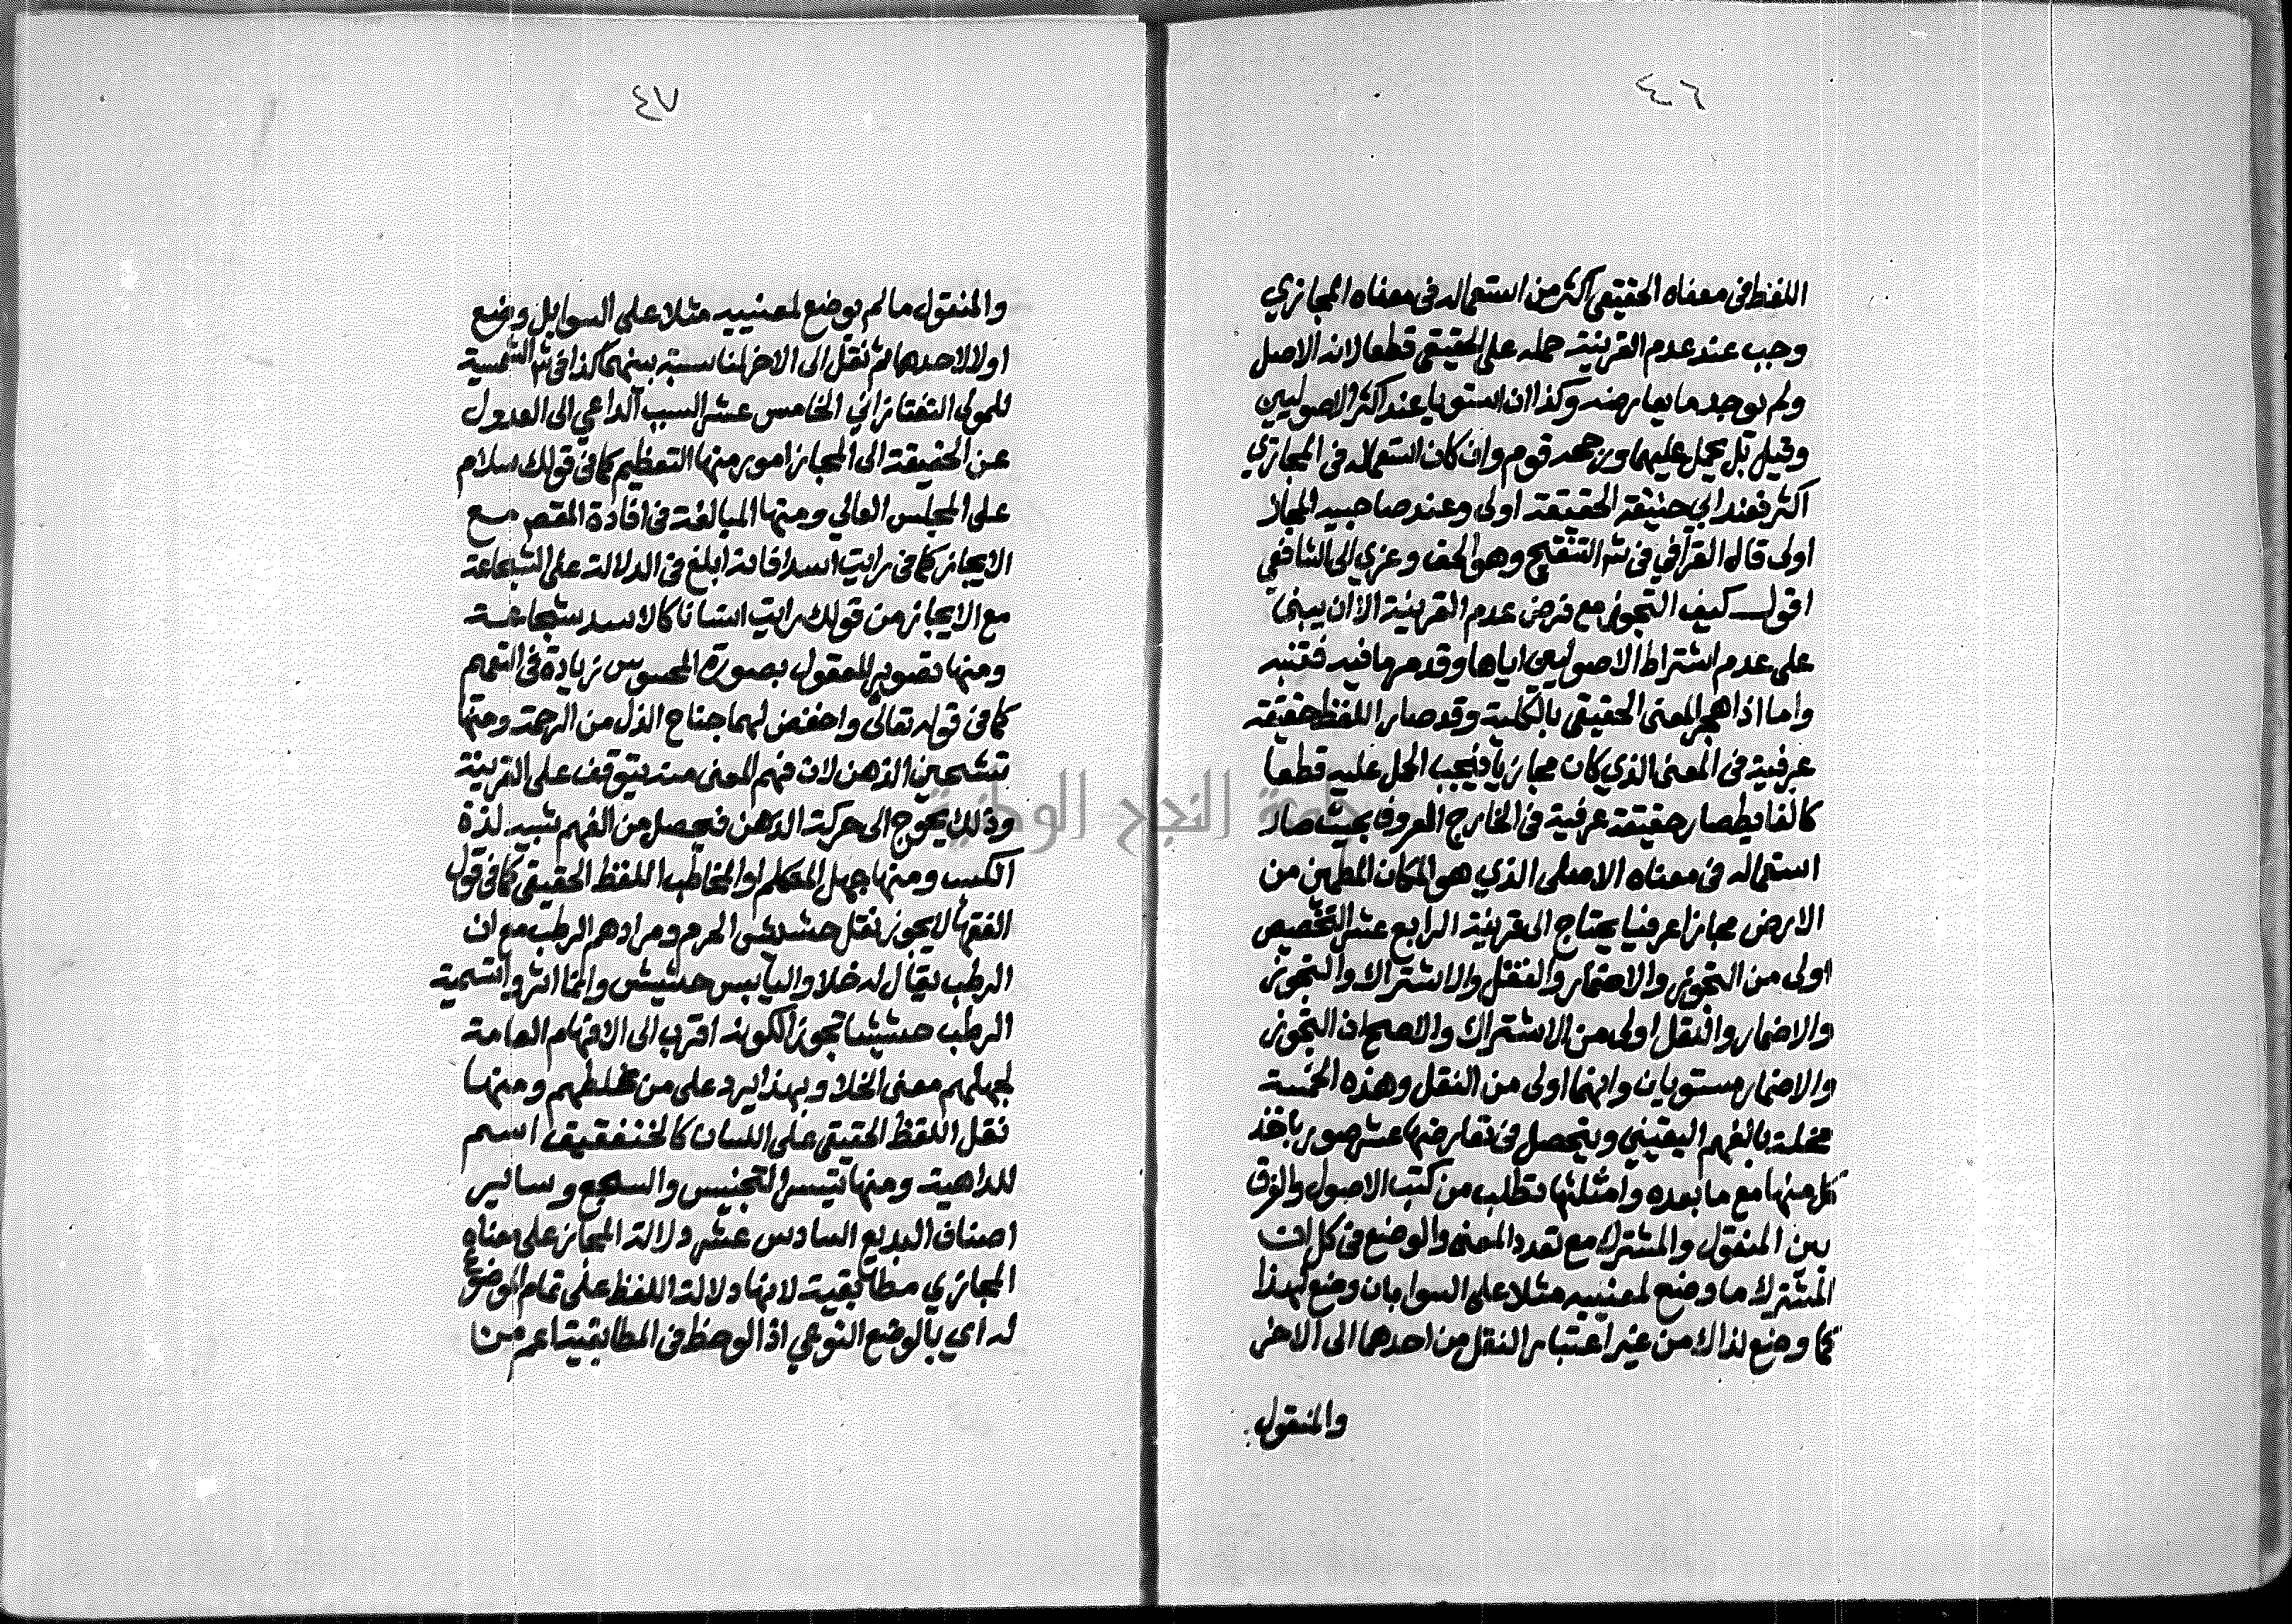 ٦٤
اللفظ فى معناه الحقيقى اكثر من استعماله فى معناه المجازي
وجب عند عدم القرينة حمله على الحقيقى قطعا لانه الاصل
ولم يوجد ما يعارضه وكذا ان استويا عند اكثر الاصوليين
وقيل بل يحمل عليهما ورجحه قوم وان كان استعماله فى المجازي
اكثر فعند ابي حنيفة الحقيقة اولى وعند صاحبيه المجاز
اولى قاله القرافي فى شر التنقيح وهو الحق وعزي الى الشافعي
اقول كيف التجوز مع فرض عدم القرينة الا ان يبنى
على عدم اشتراط الاصوليين اياها وقد مر ما فيه فتنبه
واما اذا هجر المعنى الحقيقى بالكلية وقد صار اللفظ حقيقة
عرفية فى المعنى الذي كان مجازيا فيجب الحمل عليه قطعا
كالغايط صار حقيقة عرفية فى الخارج المعروف بحيث صار
استعماله فى معناه الاصلى الذي هو المكان المطمين من
الارض مجازا عرفيا يحتاج الى قرينة الرابع عشر التخصيص
اولى من التجوز والاضمار والنقل والاشتراك والتجوز
والاضمار والنقل اولى من الاشتراك والاصح ان التجوز
والاضمار مستويان وانهما اولى من النقل وهذه الخمسة
مخلة بالفهم اليقيني ويتحصل فى تعارضها عشر صور ياخذ
كل منها مع ما بعده وامثلتها تطلب من كتب الاصول والفرق
بين المنقول والمشترك مع تعدد المعنى والوضع فى كل ان
المشترك ما وضع لمعنييه مثلا على السوا بان وضع لهذا
كما وضع لذاك من غير اعتبار النقل من احدهما الى الاخر
والمنقول
٧٤
والمنقول ما لم يوضع لمعنييه مثلا على السوا بل وضع
اولا لاحدهما ثم نقل الى الاخر لمناسبة بينهما كذا فى شر الشمسية
للمولى التفتازاني الخامس عشر السبب الداعي الى العدول
عن الحقيقة الى المجاز امور منها التعظيم كما فى قولك سلام
على المجلس العالي ومنها المبالغة فى افادة المقص مع
الايجاز كما فى رايت اسدا فانه ابلغ فى الدلالة على الشجاعة
مع الايجاز من قولك رايت انسانا كالاسد شجاعة
ومنها تصوير المعقول بصورة المحسوس زيادة فى التفهم
كما فى قوله تعالى واخفض لهما جناح الذل من الرحمة ومنها
تشحين الذهن لان فهم المعنى منه يتوقف على القرينة
وذلك يحوج الى حركة الذهن فيحصل من الفهم شبيه لذة
الكسب ومنها جهل المتكلم او المخاطب اللفظ الحقيقى كما فى قول
الفقها لا يجوز نقل حشيش الحرم ومرادهم الرطب مع ان
الرطب يقال له خلا واليابس حشيش وانما اثروا تسمية
الرطب حشيشا تجوزا لكونه اقرب الى الافهام العامة
لجهلهم معنى الخلا وبهذا يرد على من غلطهم ومنها
نقل اللفظ الحقيقى على اللسان كالخنفقيق اسم
للداهية ومنها تيسر التجنيس والسجع وساير
اصناف البديع السادس عشر دلالة المجاز على معناه
المجازي مطابقية لانها دلالة اللفظ على تمام الموضوع
له اي بالوضع النوعي اذ الوضع فى المطابقية اعم من
جامعة النجاح الوطنية